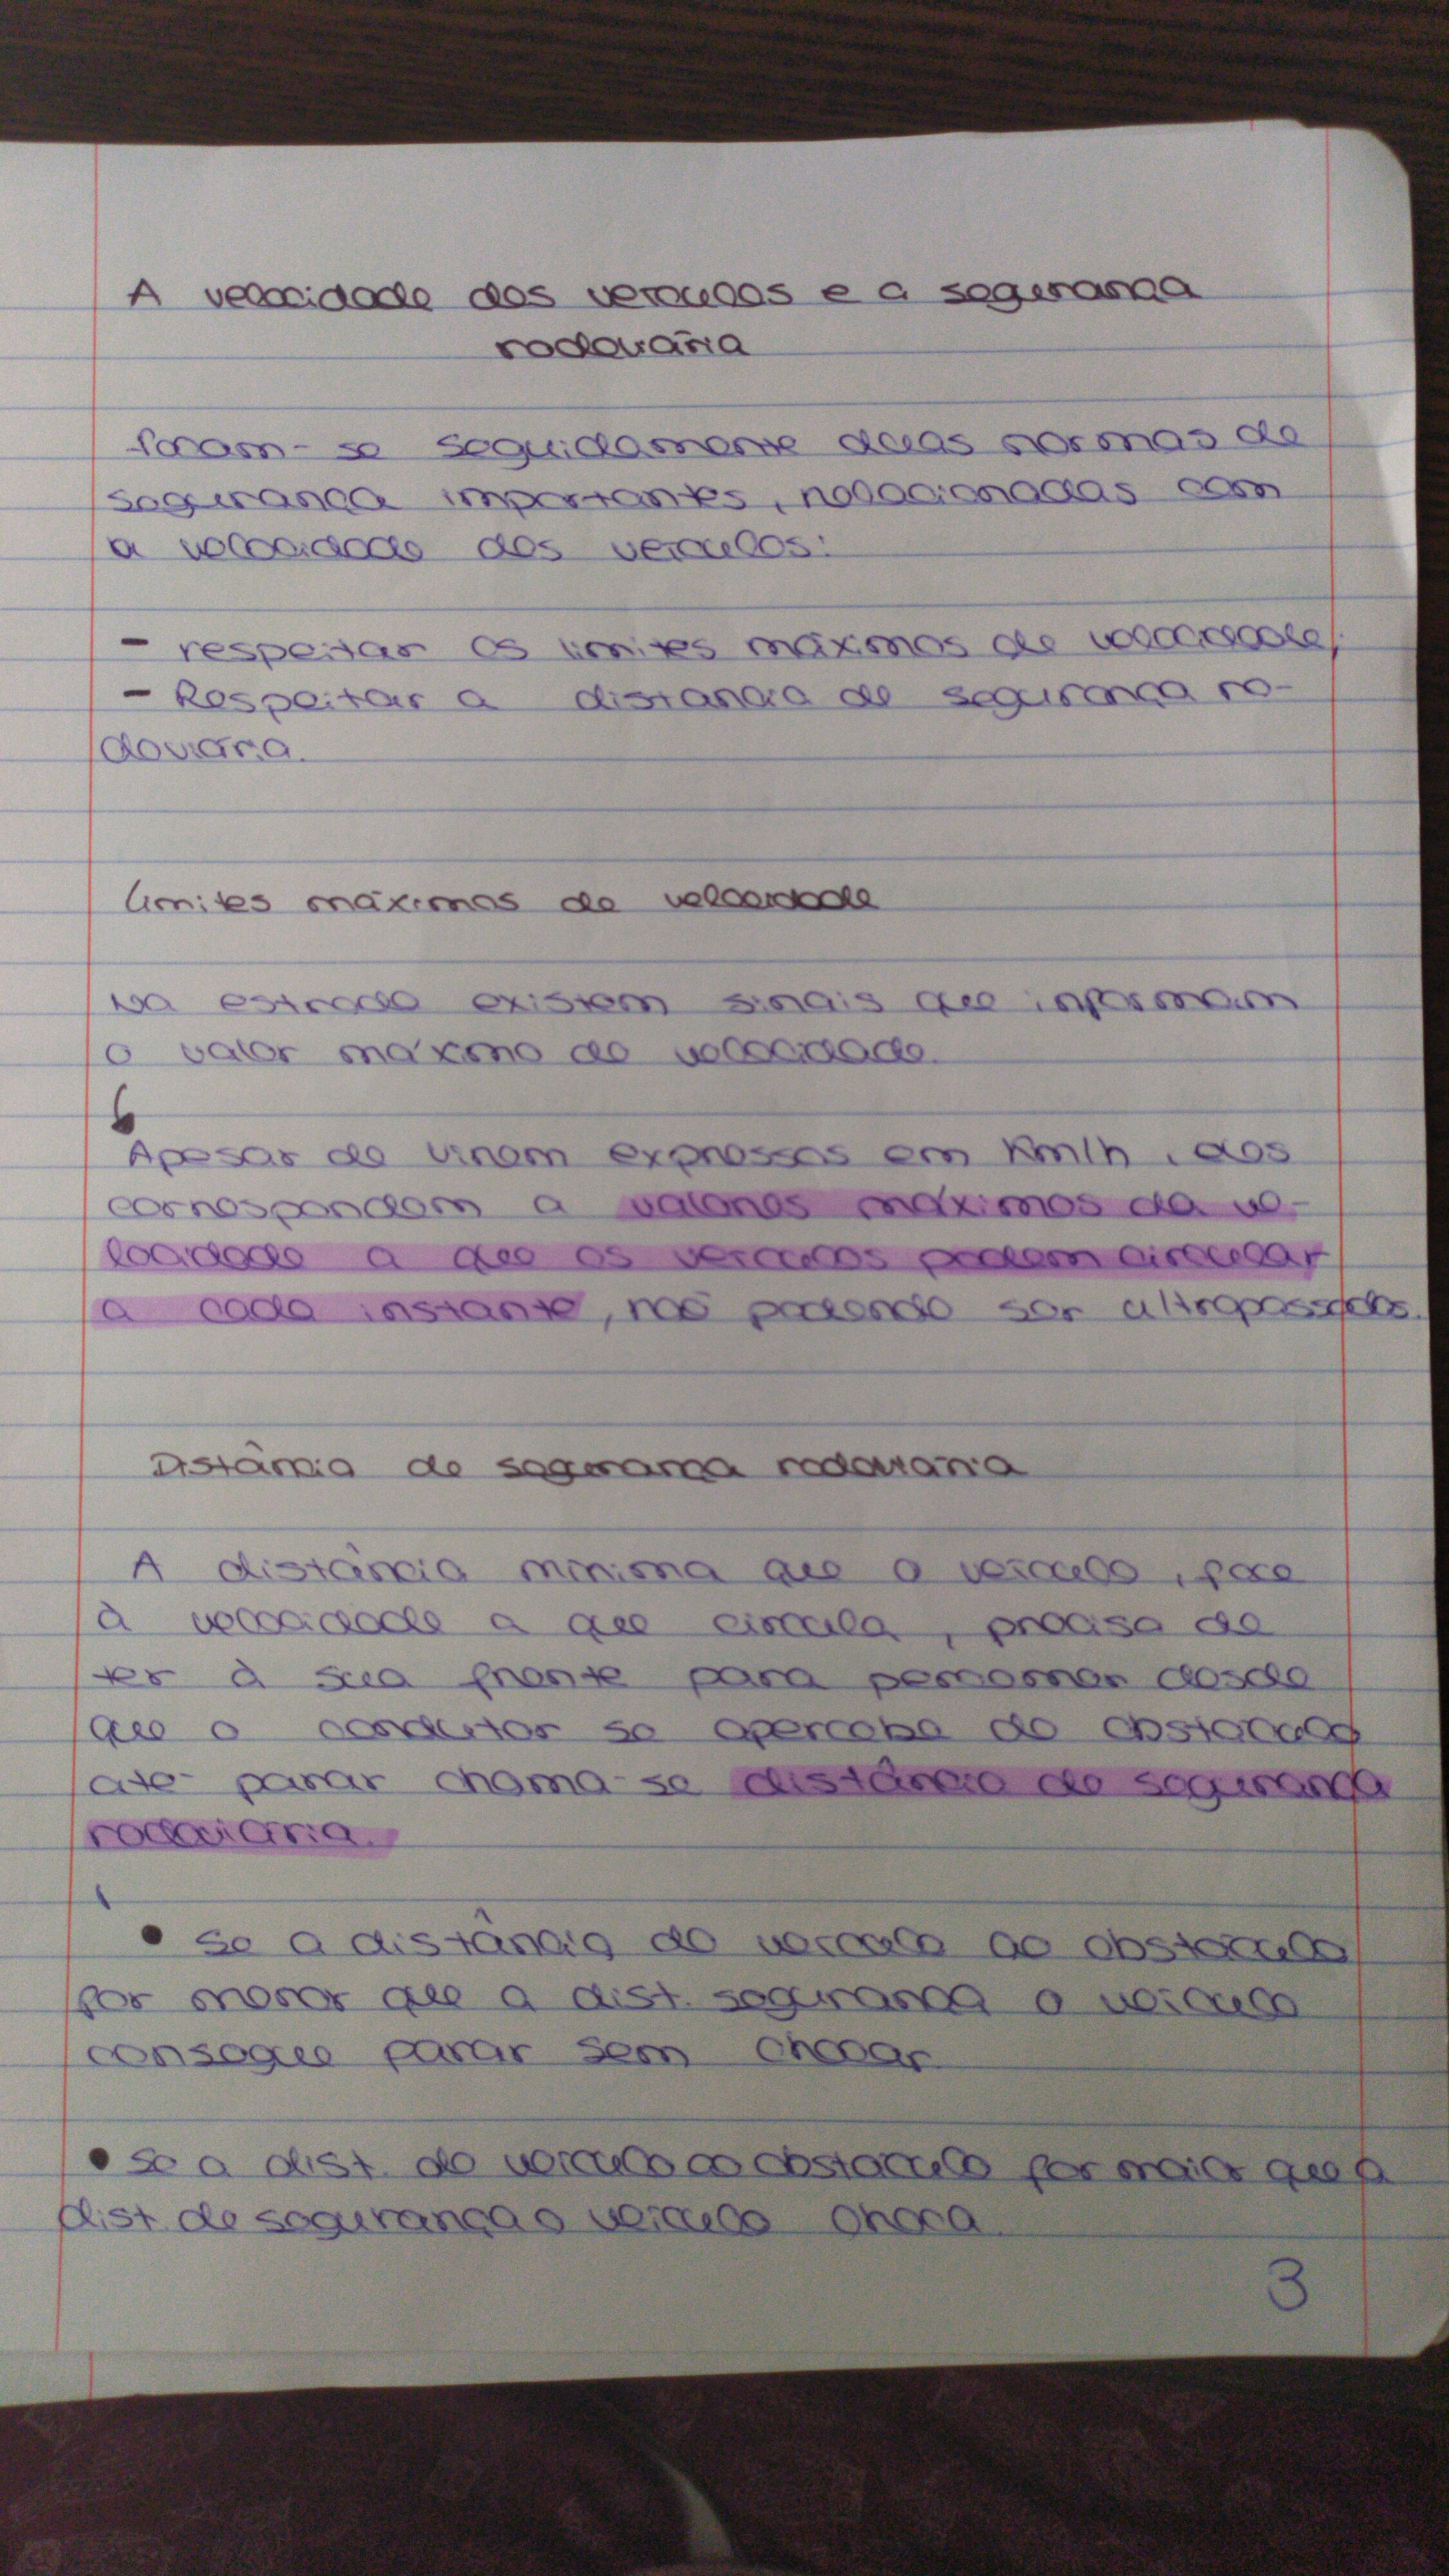 A velocidade dos veiculos e a segurança
rodoviária
seguidamente duas normas de
segurança importantes, relacionadas com
a velocidade dos veiculos:
- respeitar os limites máximos de velocidade;
- Respeitar a distancia de segurança ro-
doviária.
Limites máximos de velocidade
Na estrada existem sinais que informam
o valor máximo de velocidade.
Apesar de virem expressos em Km/h, eles
correspondem a valores máximos da ve-
locidade a que os veiculos podem circular
a cada instante, não podendo ser ultrapassados.
Distância de segurança rodoviária
A distância minima que o veiculo, face
à velocidade a que circula, precisa de
ter à sua frente para percorrer desde
que o condutor se apercebe do obstaculo
até parar chama-se distância de segurança
rodoviaria.
• Se a distância do veiculo ao obstaculo
for menor que a dist. segurança o veiculo
consegue parar sem chocar
• Se a dist. do veiculo ao obstaculo for maior que a
dist. de segurança o veiculo choca
3